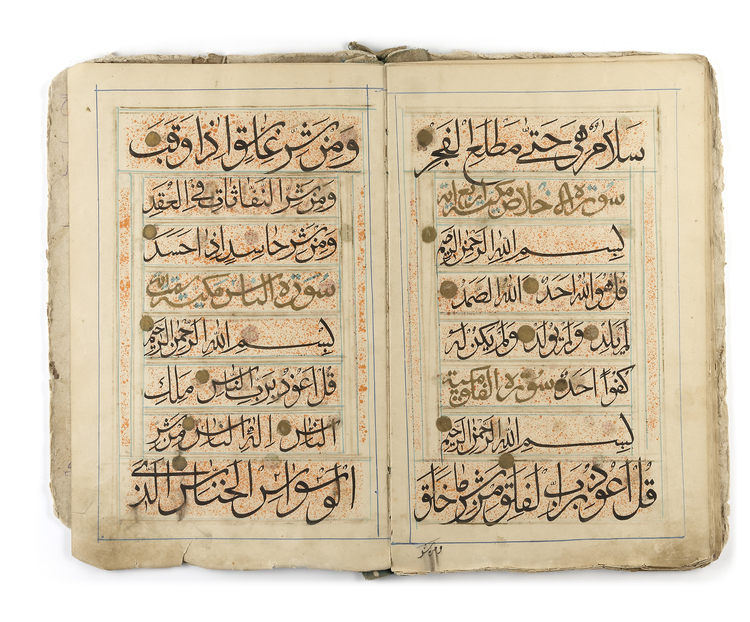 سلام هی حتی مطلع الفجر
سورة الاخلاص مكية اربع اية
بسم الله الرحمن الرحیم
قل هو الله احد الله الصمد
لم یلد ولم یولد ولم یکن له
کفوا احد سورة الفلق مكية
بسم الله الرحمن الرحیم
قل اعوذ برب الفلق من شر ما خلق
ومن شر غاسق اذا وقب
ومن شر النفاثات فی العقد
ومن شر حاسد اذا حسد
سورة الناس مكية
بسم الله الرحمن الرحیم
قل اعوذ برب الناس ملك
الناس اله الناس من شر
الوسواس الخناس الذی